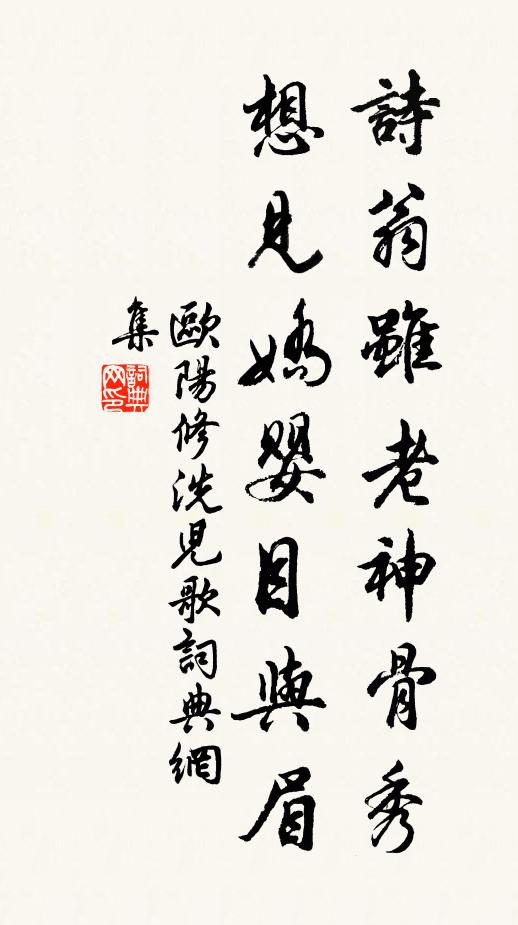 詩翁雖老神骨秀
想見嬌嬰目與眉
歐陽修洗児歌詞典網
集
詞典
网印